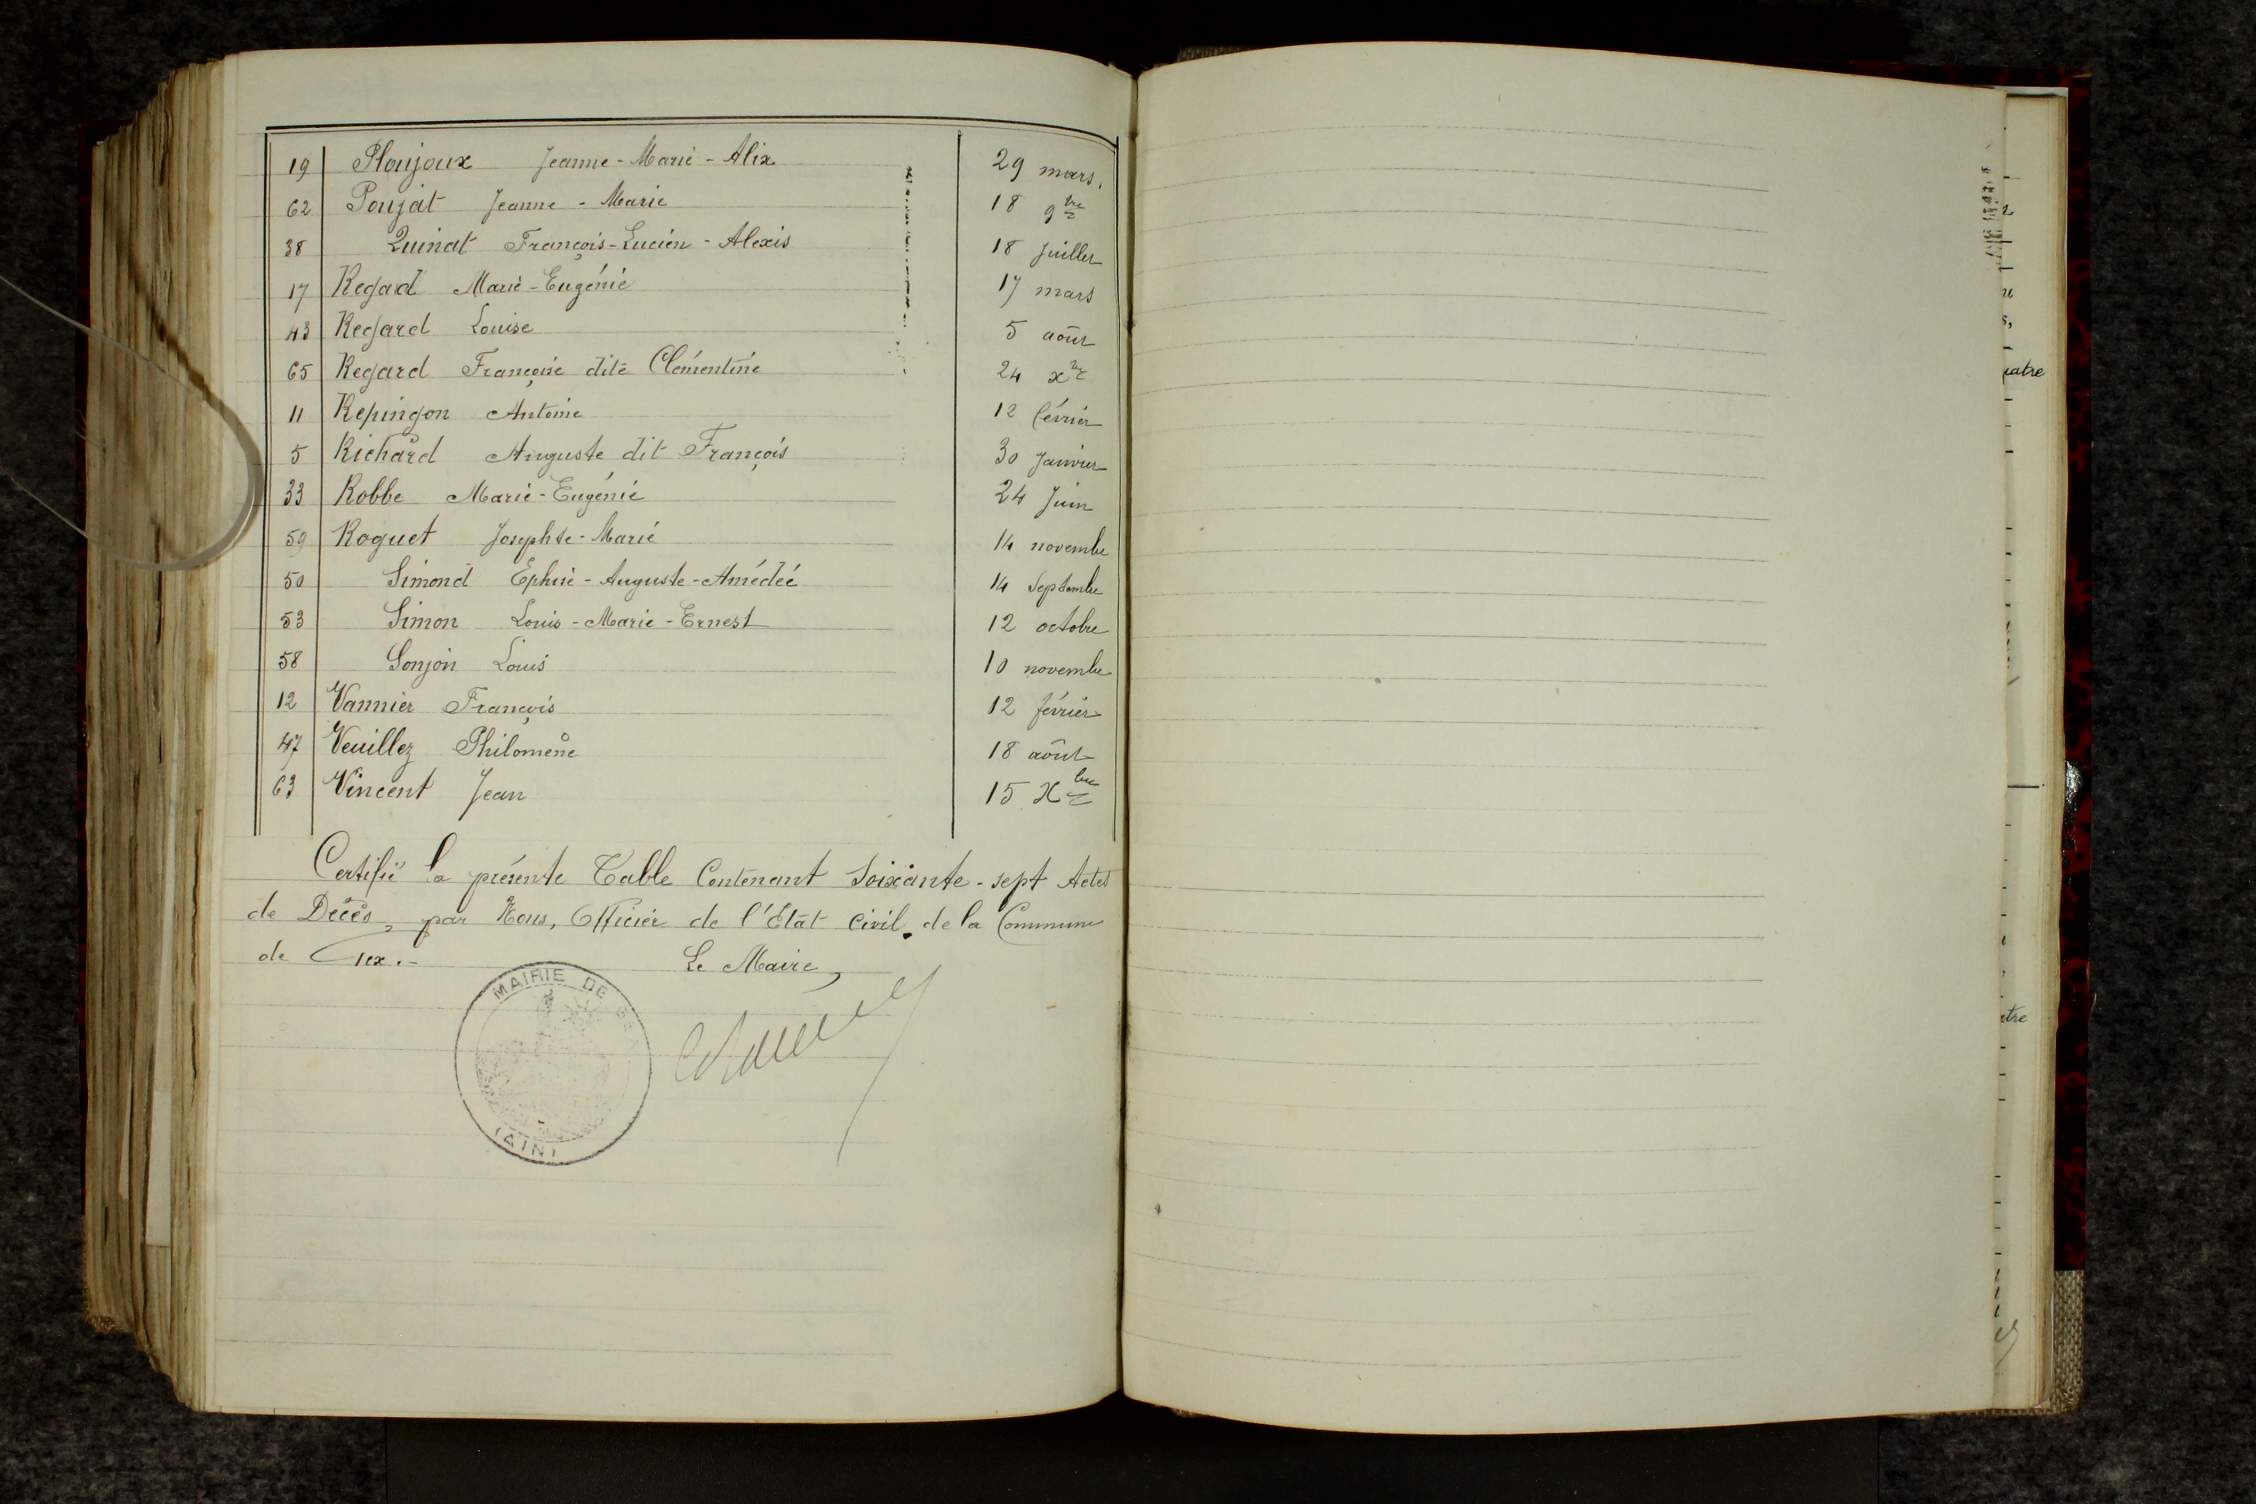 19 Ploujoux Jeanne-Marie-Alix 29 mars.
62 Poujat Jeanne-Marie 18 9bre
38 Quinat François-Lucien-Alexis 18 Juillet
17 Regad Marie-Eugénie 17 mars
43 Regard Louise 5 août
65 Regard Françoise dite Clémentine 24 xbre
11 Repingon Antoine 12 février
5 Richard Auguste dit François 30 Janvier
33 Robbe Marie-Eugénie 24 Juin
59 Roguet Josephte-Marie 14 novembre
50 Simond Ephise-Auguste-Amédée 14 Septembre
53 Simon Louis-Marie-Ernest 12 octobre
58 Sonjon Louis 10 novembre
12 Vannier François 12 février
47 Veuillez Philomène 18 août
63 Vincent Jean 15 Xbre
Certifié la présente Table Contenant Soixante-sept Actes
de Décès, par Nous, Officier de l'Etat Civil de la Commune
de Gex.-
Le Maire,
MAIRIE DE
(AIN)
uatre